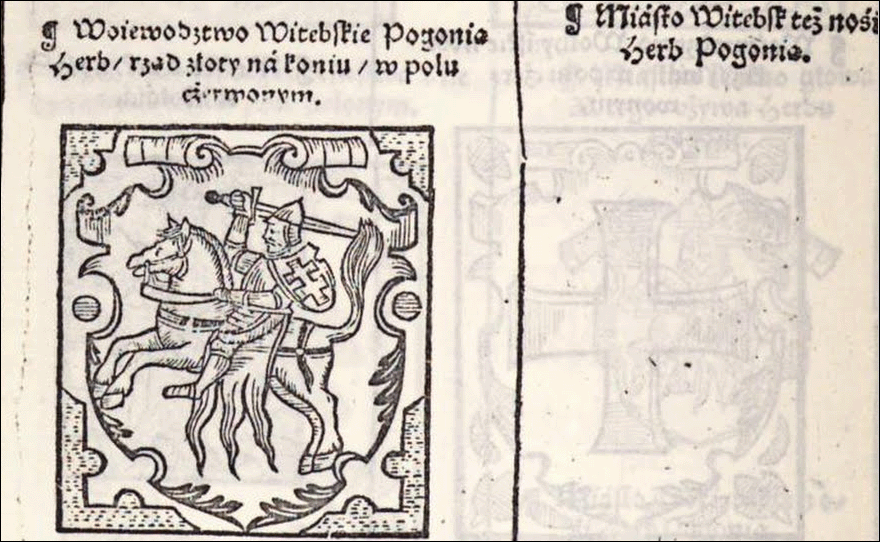 ¶ Woiewodztwo Witebskie Pogonia
Herb / rząd złoty ná koniu / w polu
czerwonym.
¶ Miásto Witebsk też nośi
Herb Pogonia.